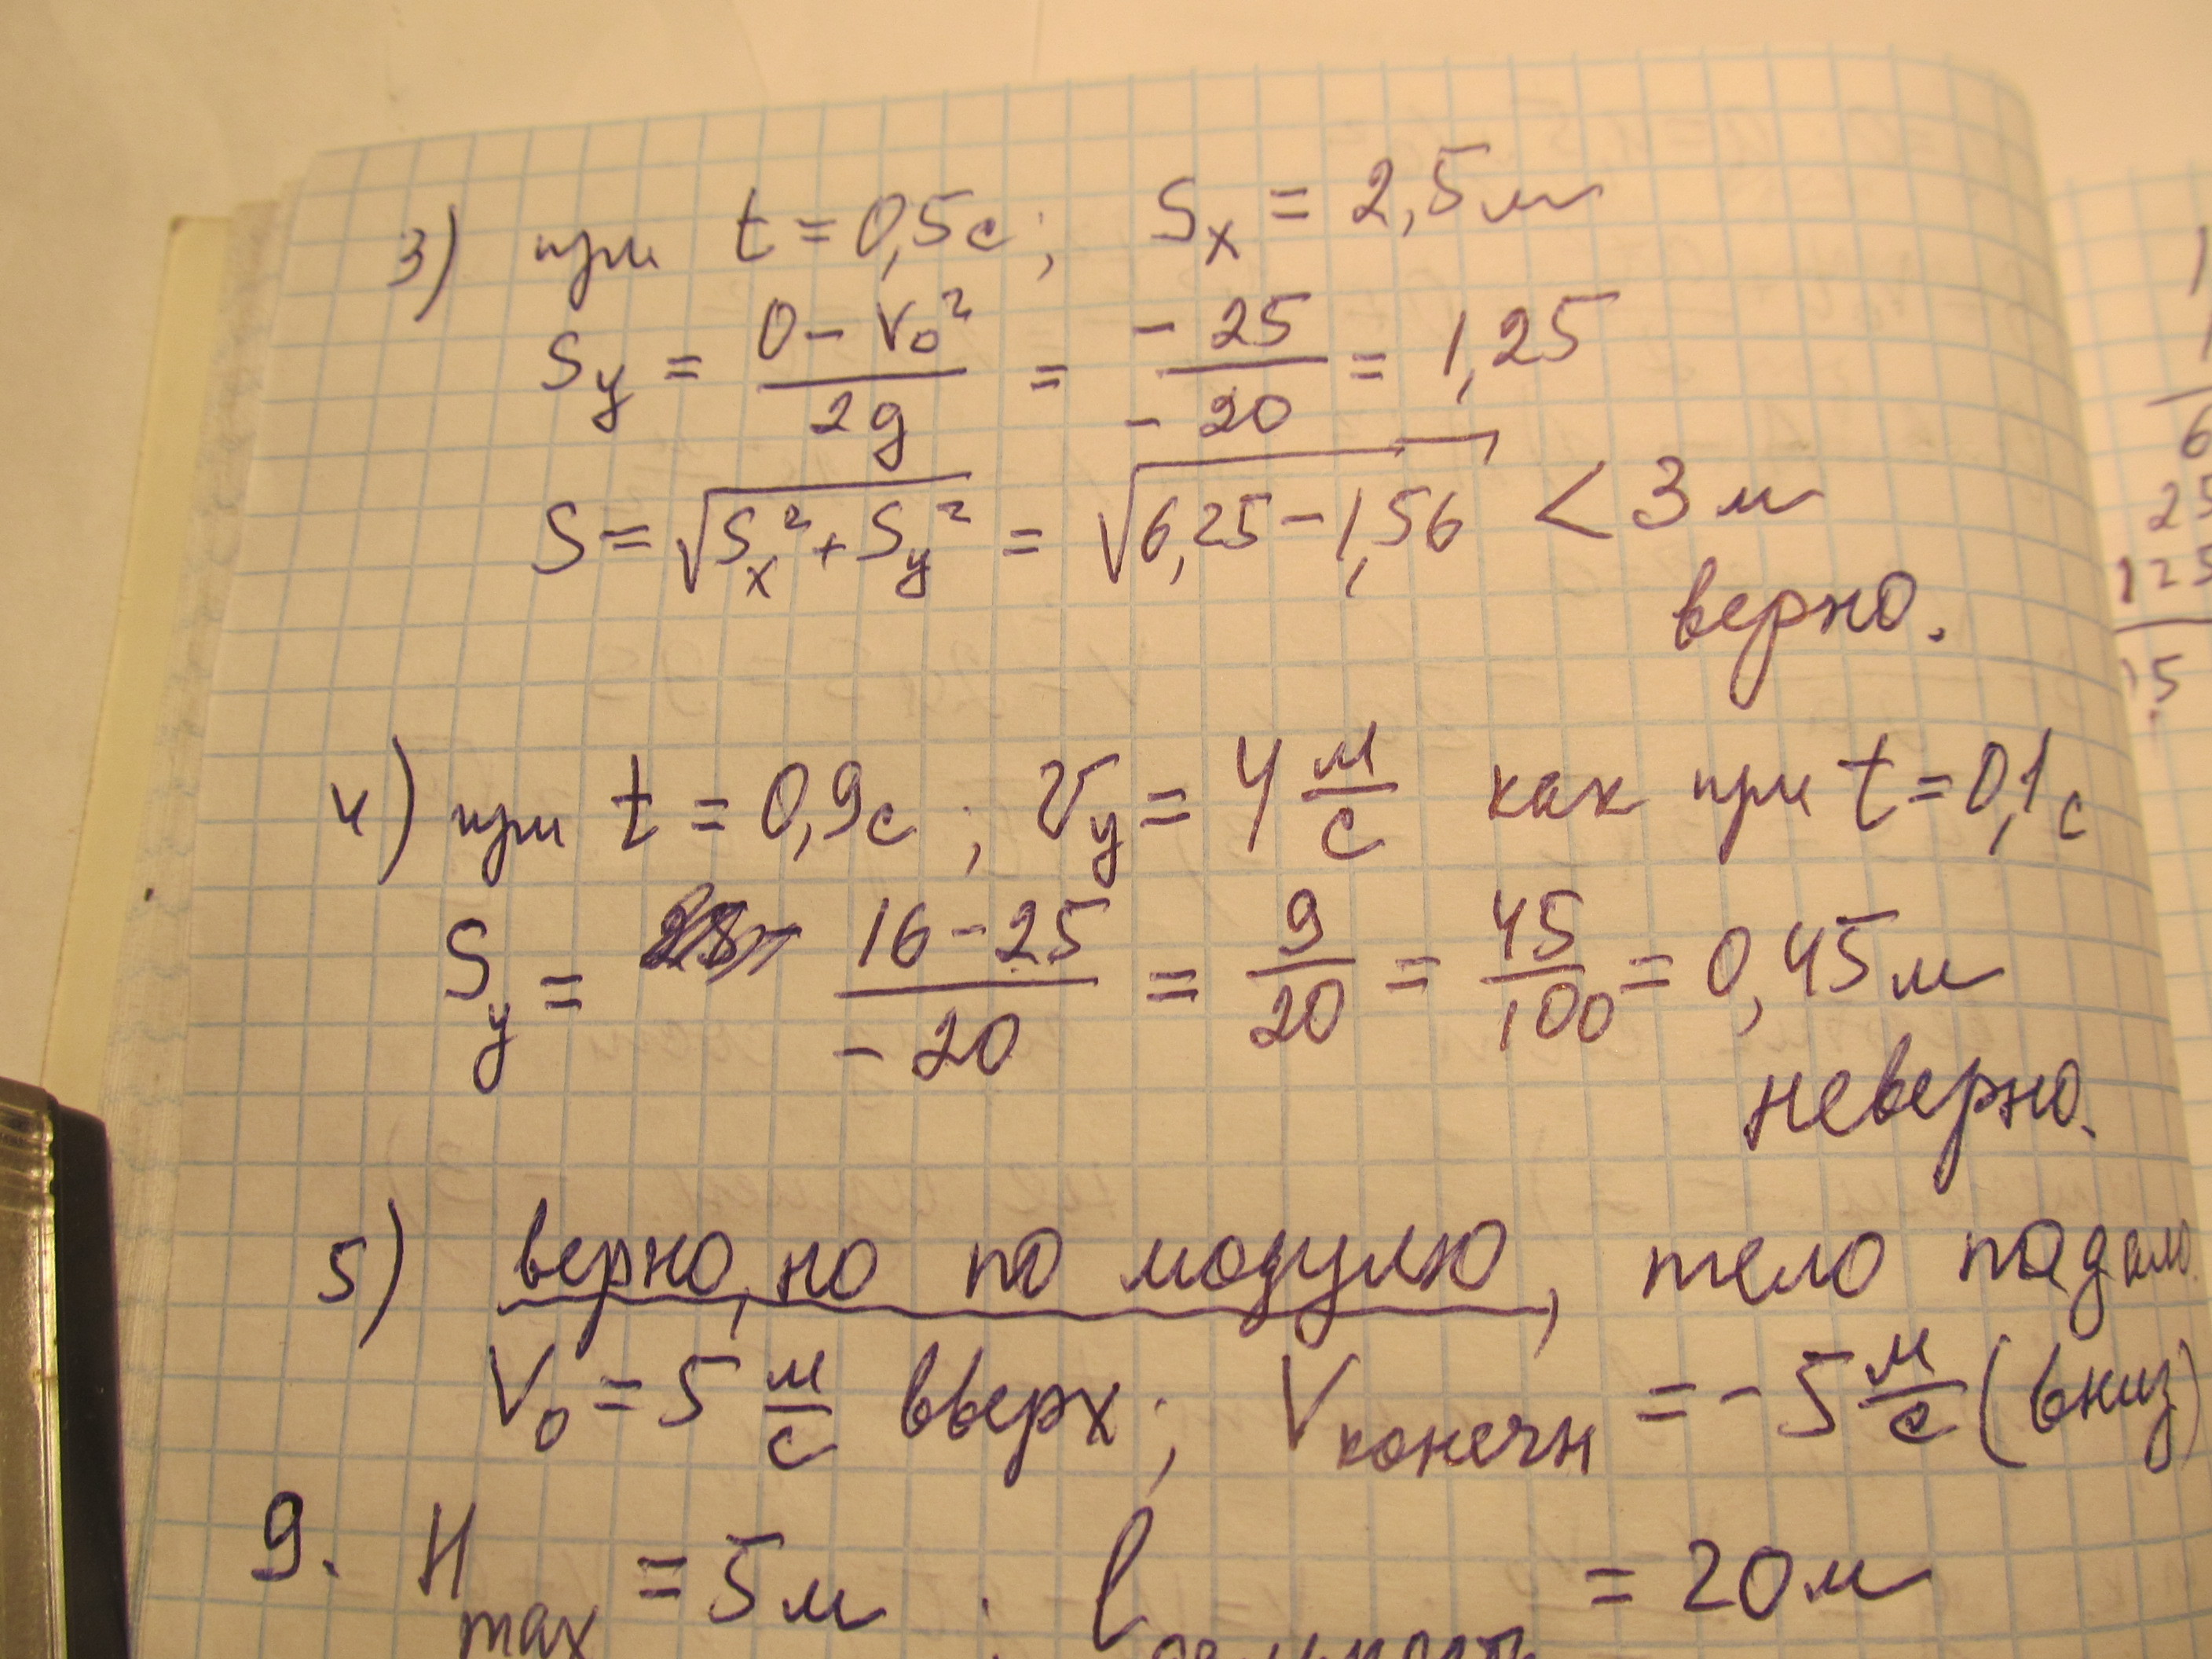 3) при t = 0,5 с; Sx = 2,5 м
Sy = (0 - V₀²)/(2g) = (-25)/(-20) = 1,25
S = √(Sx² + Sy²) = √(6,25 - 1,56) < 3 м
верно.
4) при t = 0,9 с; Vy = 4 м/с как при t = 0,1 с
Sy = (16 - 25)/(-20) = 9/20 = 45/100 = 0,45 м
неверно.
5) верно, но по модулю, тело падало.
V₀ = 5 м/с вверх; Vконечн = -5 м/с (вниз)
9. Hmax = 5 м; l = 20 м
1
1
6
25
125
5